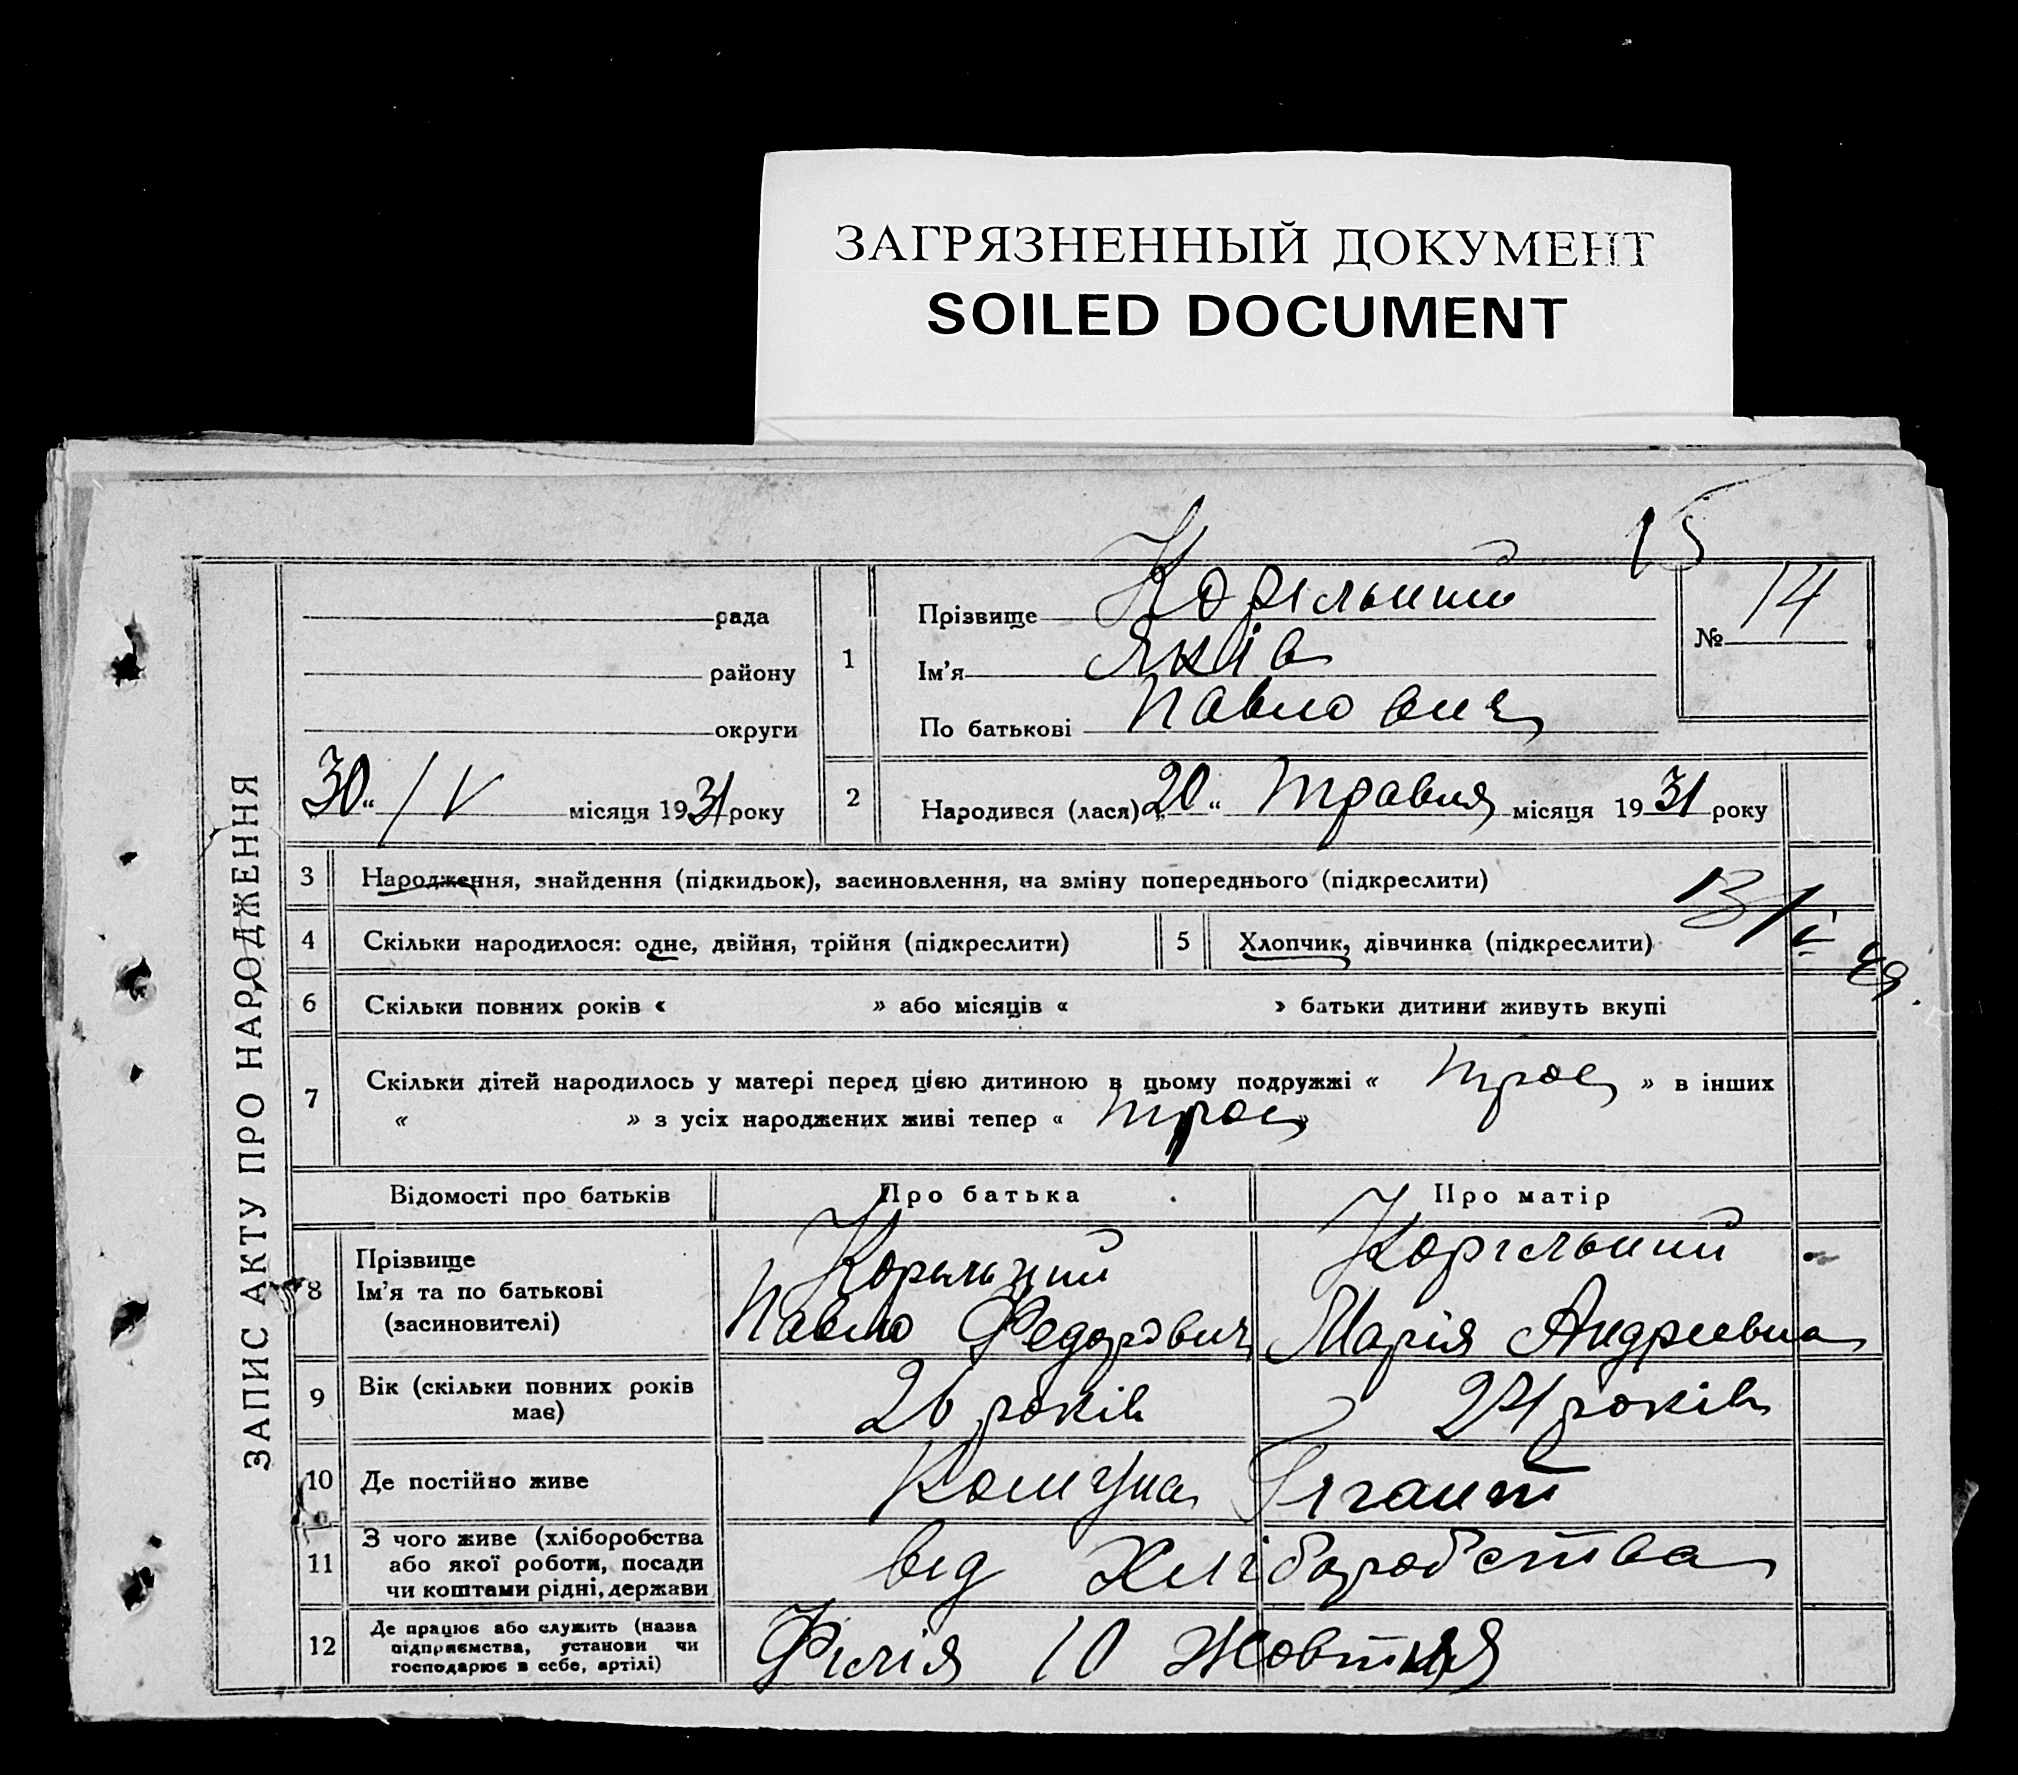 ЗАГРЯЗНЕННЫЙ ДОКУМЕНТ
SOILED DOCUMENT
15
ЗАПИС АКТУ ПРО НАРОДЖЕННЯ
рада
району
округи
30 " / V місяця 1931 року
1
Прізвище Корільчий
Ім'я Яків
По батькові Павлович
№ 14
2 Народився (лася) „20 " травня місяця 1931 року
3 Народження, знайдення (підкидьок), засиновлення, на зміну попереднього (підкреслити)
4 Скільки народилося: одне, двійня, трійня (підкреслити)
5 Хлопчик, дівчинка (підкреслити)
6 Скільки повних років « » або місяців « » батьки дитини живуть вкупі
7 Скільки дітей народилось у матері перед цією дитиною в цьому подружжі « троє » в інших
« » з усіх народжених живі тепер « троє »
Відомості про батьків Про батька Про матір
8 Прізвище
Ім'я та по батькові
(засиновителі)
Павло Федорович
Марія Андрієвна
9 Вік (скільки повних років має)
26 років
24 років
10 Де постійно живе
Комуна Гігант
11 З чого живе (хліборобства
або якої роботи, посади
чи коштами рідні, держави
від Хліборобства
12 Де працює або служить (назва
підприємства, установи чи
господарює в себе, артілі)
Філія 10 Жовтня